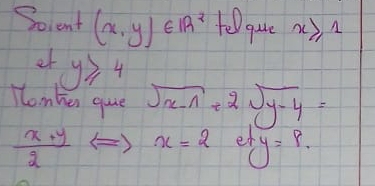 Soient (x,y) ∈ ℝ² tel que x ⩾ 1
et y ⩾ 4
Montrer que √(x-1) + 2√(y-4) =
(x+y)/2 ⟺ x = 2 et y = 8.